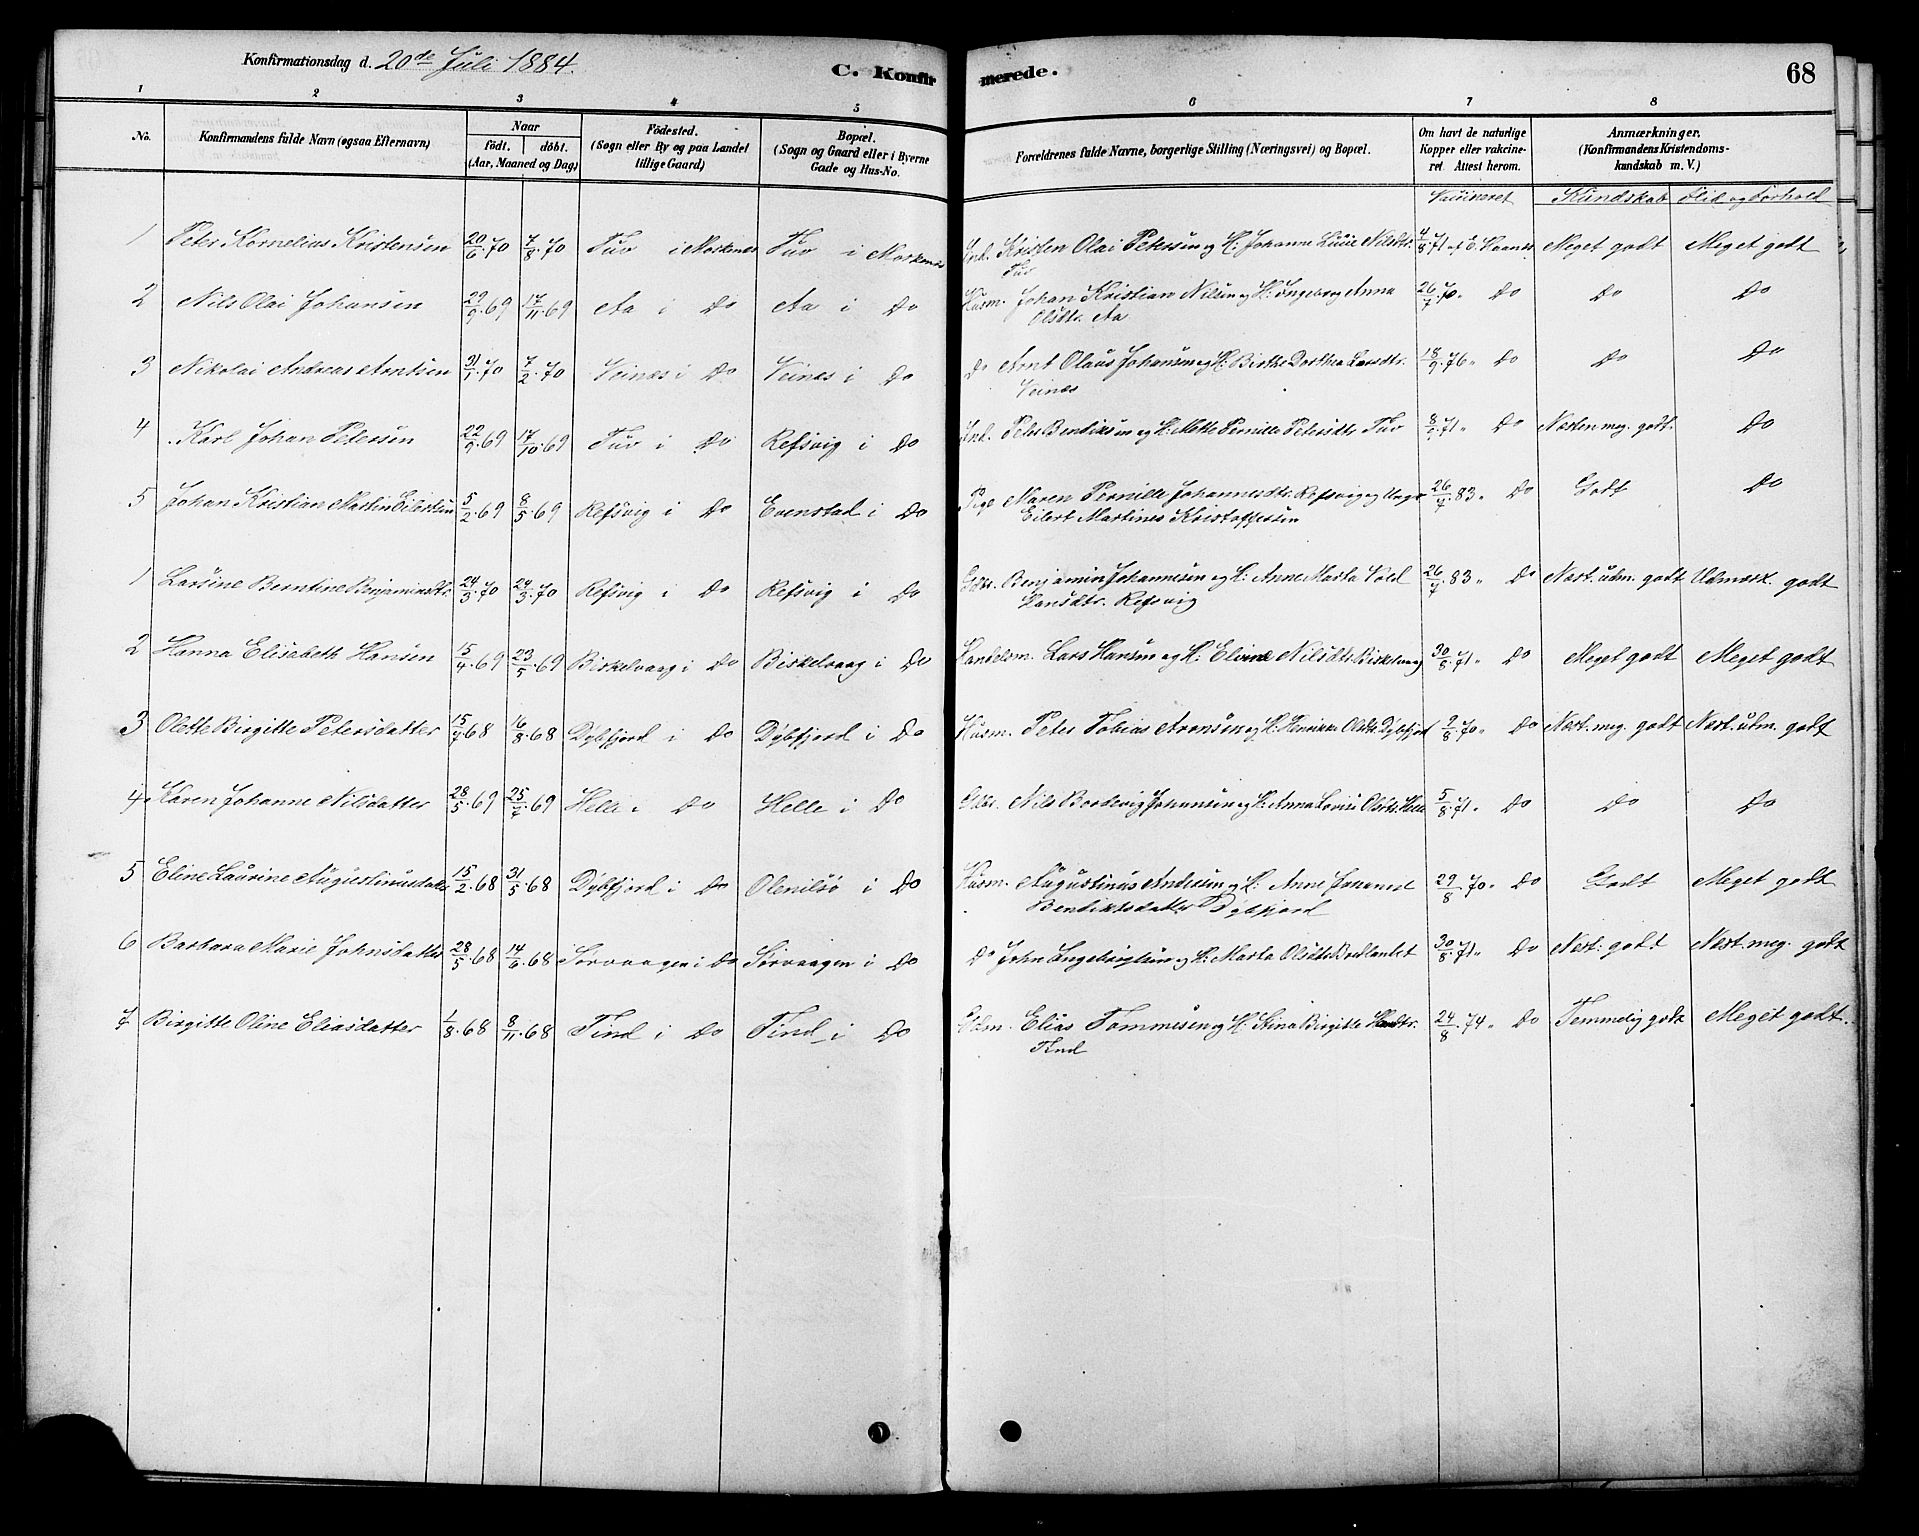 Konfirmationsdag d. 20de Juli 1884. C. Konfirmerede. 68
1 2 3 4 5 6 7 8
No. Konfirmandens fulde Navn (ogsaa Efternavn) Naar födt. döbt. (Aar, Maaned og Dag) Födested. (Sogn eller By og paa Landet tillige Gaard) Bopæl. (Sogn og Gaard eller i Byerne Gade og Hus-No. Forældrenes fulde Navne, borgerlige Stilling (Næringsvei) og Bopæl. Om havt de naturlige Kopper eller vakcineret. Attest herom. Anmærkninger. (Konfirmandens Kristendomskundskab m. V.)
Vaccineret Kundskab Flid og Forhold
1 Peter Kornelius Kristensen 20/6.70 7/8.70 Tuv i Moskenæs Tuv i Moskenæs Ind. Kristen Olai Petersen og H: Johanne Lucie Nilsdtr. Tuv 4/8.71 af Meget godt Meget godt
2 Nils Olai Johansen 29/9.69 17/11.69 Aa i Do Aa i Do Husm. Johan Kristian Nilsen og H: Ingeborg Anna Olsdtr. Aa 26/7.70 " Do Do Do
3 Nikolai Andreas Arntsen 31/1.70 7/2.70 Veines i Do Veines i Do Do Arnt Olaus Johansen og H: Birthe Dorthea Larsdtr. Veines 18/9.76 " Do Do Do
4 Karl Johan Petersen 22/9.69 17/10.69 Tuv i Do Refsvig i Do Ind. Peter Bentiksen og H: Mette Pernille Petersdtr Tuv 71 " Do Næsten meg. godt. Do
5 Johan Kristian Martin Eilertsen 5/2.69 8/5.69 Refsvig i Do Evenstad i Do Pige Maren Pernille Johannesdtr. Refsvig og Ungk Eilert Martines Kristoffersen 26/7.83 " Do Godt Do
1 Larsine Berntine Benjaminsdtr. 24/3.70 24/3.70 Refsvig i Do Refsvig i Do Gbr. Benjamin Johannesen og H: Anne Marta Vold Hansdtr. Refsvig 26/7.83 " Do Næst. udm. godt Udmærk. godt
2 Hanna Elisabeth Hansen 15/4.69 23/5.69 Biskelvaag i Do Biskelvaag i Do Handelsm. Lars Hansen og H: Elirine Nilsdtr Biskelvaag 30/8.71 " Do Meget godt Meget godt
3 Olette Birgitte Petersdatter 15/7.68 16/8.68 Dybfjord i Do Dybfjord i Do Husm. Peter Tobias Aronsen og H: Henrikke Olsdtr Dybfjord 2/8.70 " Do Næst. meg. godt Næst. udm. godt
4 Karen Johanne Nilsdatter 28/5.69 25/7.69 Helle i Do Helle i Do Gbr. Nils Borkevig Johansen og H: Anna Lovise Olsdtr. Helle 5/8.71 " Do Do Do
5 Eline Laurine Augustinusdatter 15/2.68 31/5.68 Dybfjord i Do Olenilsø i Do Husm. Augustinus Andersen og H: Anne Bentiktsdatter Dybfjord 29/8.70 " Do Godt Meget godt
6 Barbara Marie Johnsdatter 28/5.68 14/6.68 Sørvaagen i Do Sørvaagen i Do Do John Engebrigtsen og H: Marta Olsdtr Bredlandet 30/8.71 " Do Næst: godt Næst. meg. godt
7 Birgitte Oline Eliasdatter 1/8.68 8/11.68 Tind i Do Tind i Do Gdm. Elias Tommesen og H: Stina Birgitte Hansdtr. Tind 24/8.74 " Do Temmelig godt Meget godt.